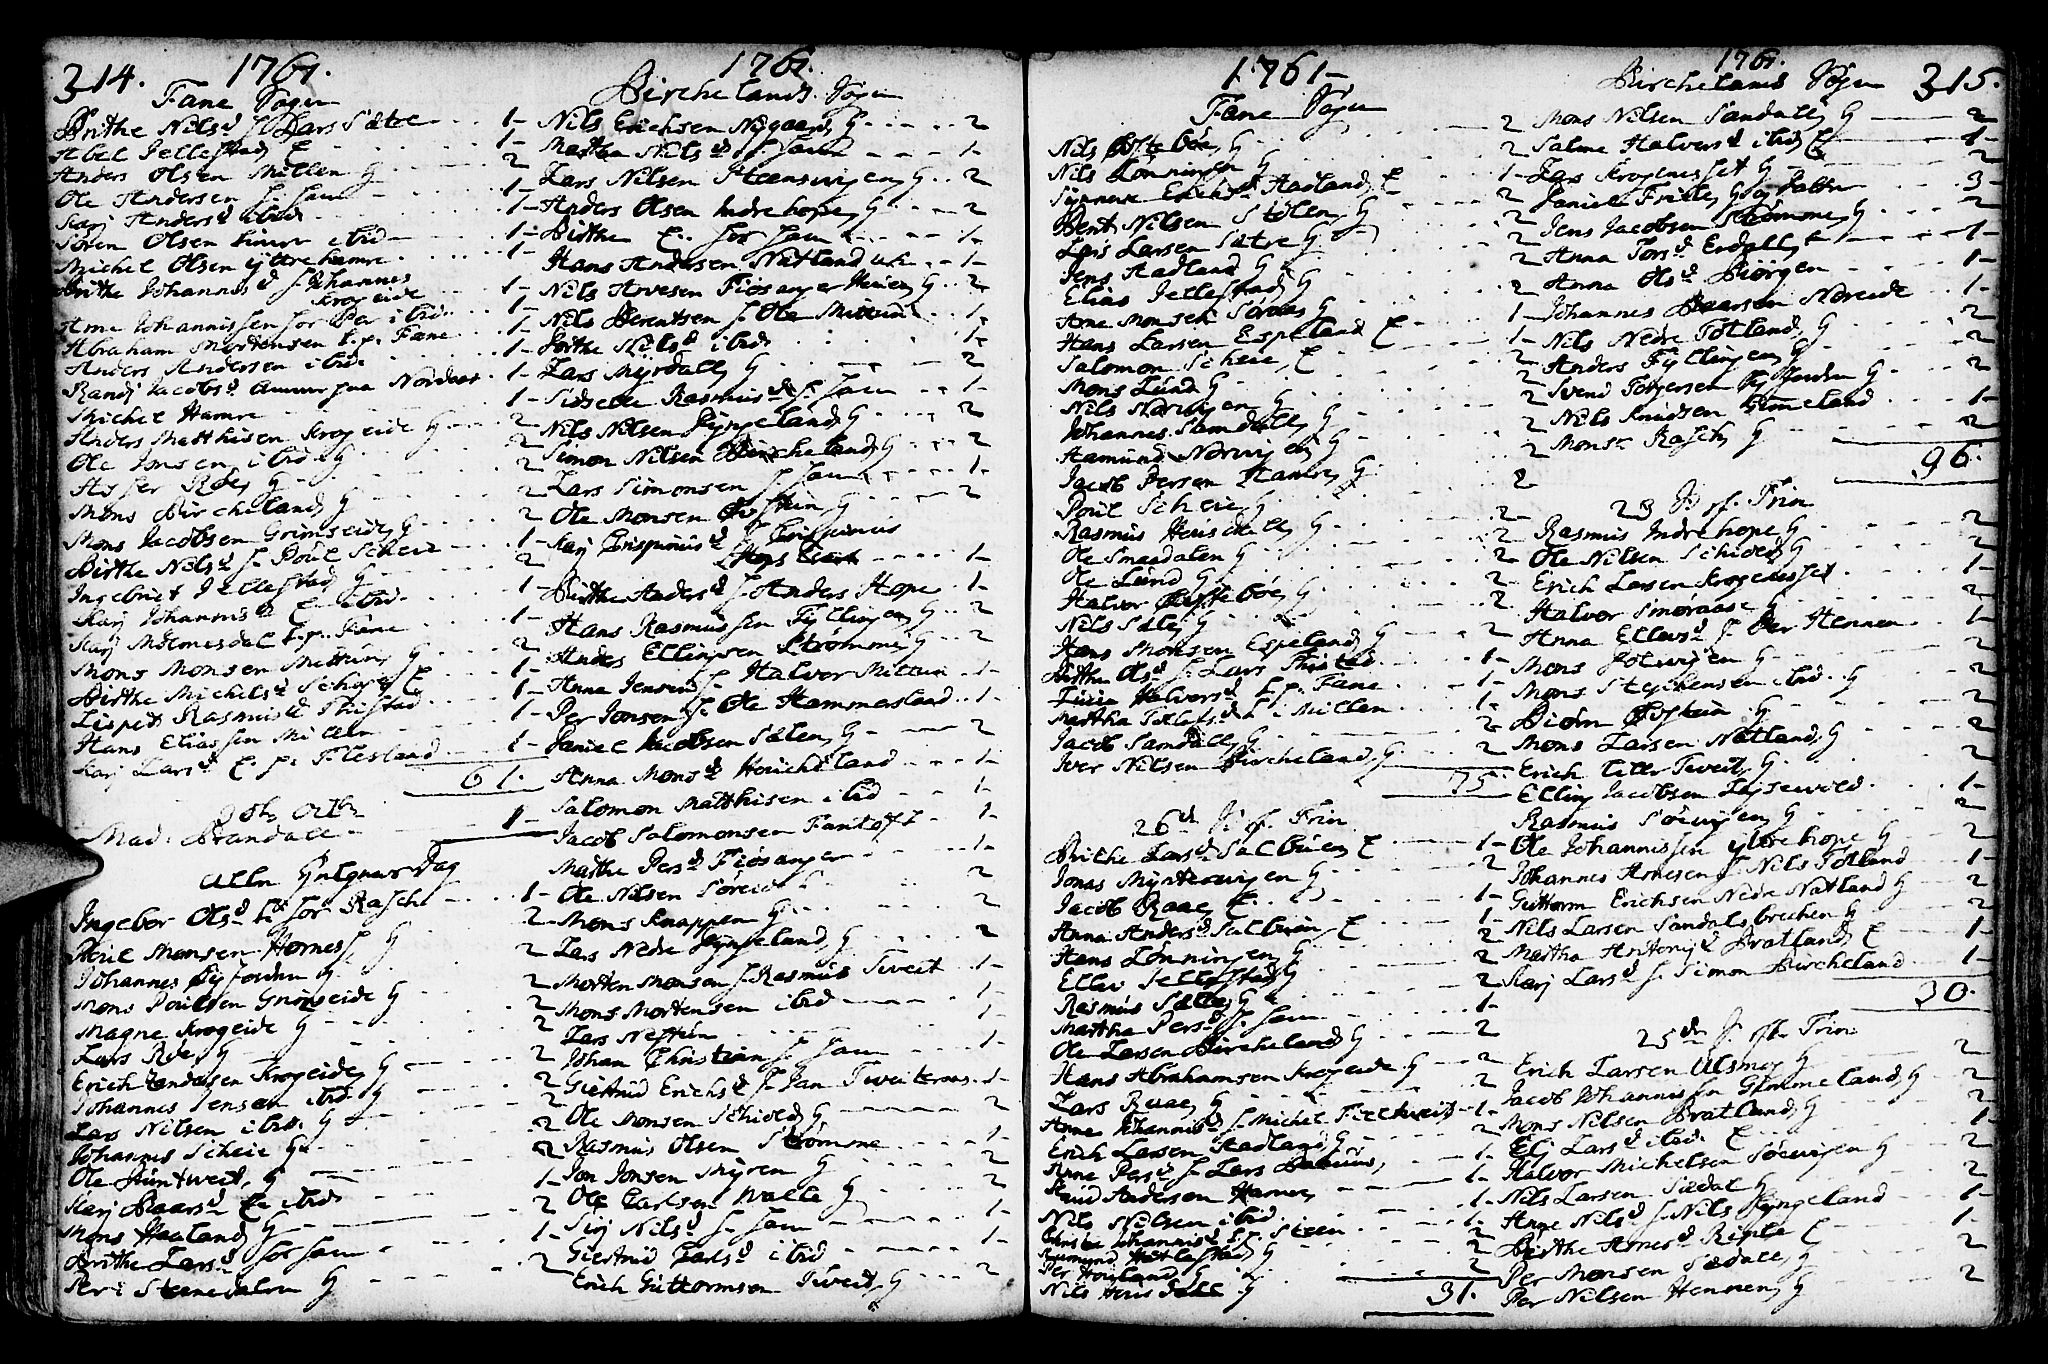 314. 1761.
Fane Sogn
Brithe Nilsd f. Lars Sætre 1-
Abel Jellestad E 1-
Anders Olsen Millen G 2
Ole Andersen f. ham 1-
Karj Andersd ibid 1-
Sören Olsen hamre ibid 1-
Michel Olsen yttrehamre 1-
Brithe Johannesd f. Johannes
Krogeide 1-
Arne Johannissen for Per ibid 1-
Abraham Mortensen Fane 1-
Anders Andersen ibid 1-
Randj Jacobsd Nordaas 1-
Michel Hamre 1-
Anders Matthisen Krogeide G 2
Ole Jonsen ibid G 2
Røe G 2
Mons Bircheland G 2
Mons Jacobsen Grimseide G 2
Birthe Nilsd f. Poul Scheie 1-
Ingebrict Jellestad G 2
Karj Johannisd E ibid 1-
Karj Midmesdal Fane 1-
Mons Monsen Mittun G 2
Birthe Michelsd Schage E 1-
Lispet Rasmusd Thistad 1-
Hans Eliassen Millen 1-
Karj Larsd E f. Flesland 1-
61.
Mad. Brandall 1-
Allr Helgners Dag
Ingebor Olsd for Rasch 1-
Poul Monsen Hornes G 2
Johannes G 2
Mons Poulsen Grimseide G 2
Magne Krogeide G 2
Lars Røe G 2
Erich Andersen Krogeide G 2
Johannes Jensen ibid G 2
Lars Nilsen ibid G 2
Johannes Scheie G 2
Ole Runtveit G 2
Karj Baarsd E ibid 1-
Mons Haaland G 2
Brithe Larsd for ham 1-
Per i Steinsdalen G 2
1761.
Birchelands Sogn
Nils Erichsen Nygaard G 2
Martha Nilsd f. ham 1-
Lars Nilsen Steensvigen G 2
Anders Olsen Indrehope G 2
Birthe E for ham 1-
Hans Andersen Natland 1-
Nils Arvesen Fiøsanger G 2
Nils Berentsen f. Ole Mittun 1-
Birthe Nilsd ibid 1-
Lars Myrdall G 2
Sidsele Rasmusd f. ham 1-
Nils Nilsen Røngeland G 2
Simon Nilsen Bircheland G 2
Lars Simonsen f. ham 1-
Ole Monsen Øvstun G 2
Karj Crispinusd f. Crispinus
1-
Birthe Andersd f. Anders Hope 1-
Hans Rasmussen Fyllingen G 2
Anders Ellingsen Strømme G 2
Anna Jensd f. Halvor Mittun 1-
Per Jonsen f. Ole Hammersland 1-
Daniel Jacobsen Sælen G 2
Anna Monsd 1-
Salomon Matthisen ibid 1-
Jacob Salomonsen Fantoft 1-
Marthe Persd Fiøsanger 1-
Ole Nilsen Søreide G 2
Mons Knappen G 2
Lars Nedre Røngeland G 2
Morten Monsen f. Rasmus Tveit 1-
Mons Mortensen ibid 1-
Lars Nestun
Johan Christian f. ham 1-
Giertrud Erichsd f. Jan Tveiteraas 1-
Ole Monsen Schiold G 2
Rasmus Olsen Strømme 1-
Jon Jonsen Myren G 2
Ole Carlsen Walle G 2
Sirj Nilsd f. ham 1-
Giertrud Carlsd ibid 1-
Erich Guttormsen Tveit G 2
1761-
Fane Sogn
Nils Østebøe G 2
Nils Lønningen G 2
Synneve Erichsd Aadland E 1-
Bent Nilsen Stølen G 2
Lars Larsen Sætre G 2
Jens Aadland G 2
Elias Jellestad G 2
Arne Monsen Søraas G 2
Hans Larsen Espeland E 1-
Salomon Scheie E 1-
Mons Lund G 2
Nils Norvigen G 2
Johannes Samdall G 2
Aamund Norvigen G 2
Jacob Persen Hamre G 2
Poul Scheie G 2
Rasmus Heusdall G 2
Ole Smaadalen G 2
Ole Lund G 2
Halvor Østebøe G 2
Nils Sæle G 2
Hans Monsen Espeland G 2
Birthe Olsd f. Lars Thistad 1-
Halvorsd Fane 1-
Martha Millen 1-
Jacob Samdall G 2
Iver Nilsen Bircheland G 2
75.
26de S. p. Trin
Brithe Larsd Salbuen E 1-
Jonas Myntevigen G 2
Jacob Raae E 1-
Anna Andersd Salbuen E 1-
Hans Lønningen G 2
Eller Jellestad G 2
Rasmus Sælle G 2
Martha Persd f. ham 1-
Ole Larsen Bircheland G 2
Hans Abrahamsen Krogeide G 2
Lars Raae G 2
Anne Johannisd f. Michel 1-
Erich Larsen Aadland G 2
Anne Persd f. Lars 1-
Knud Andersen Hamre 1-
Nils Nilsen ibid 1-
Christi Johannisd Steen 1-
Aamund Hatlestad G 2
Per Hougland G 2
Nils Heusdall G 2
31.
1761.
Birchelands Sogn 315.
Mons Nilsen Sandall G 2
Salme Halversd ibid E 1-
Lars Krogenesset G 2
Daniel Friile G og Datter 3-
Jens Jacobsen Strømme G 2
Anna Torsd Erdall E 1-
Anna Olsd Biørgen 1-
Johannes Baarsen Noreide 1-
Nils Nedre Totland G 2
Anders Fyllingen G 2
Svend Torgersen G 2
Nils Knudsen Gimmeland 1-
Monsr Rasch G 2
96.
23 S. p. Trin
Rasmus Indrehope G 2
Ole Nilsen Schiold G 2
Erich Larsen Krogenesset 1-
Halvor Smøraas G 2
Anna Ellersd f. Per Hennen 1-
Mons Solvigen G 2
Mons Stephensen ibid G 2
Biørn Øvstun G 2
Mons Larsen Natland G 2
Erich Litle Tveit G 2
Elling Jacobsen Lysevold 1-
Rasmus Sørvigen G 2
Ole Johannissen yttrehope G 2
Johannes Arnesen f. Nils Totland 1-
Guttorm Erichsen Nedre Natland G 2
Nils Larsen Sandalsbrechen G 2
Martha Antonjd Bratland E 1-
Karj Larsd f. Simon Bircheland 1-
30.
25de S. p. Trin
Erich Larsen Ulsmog G 2
Jacob Johannissen Gimmeland G 2
Mons Nilsen Bratland G 2
Elj Larsd ibid E 1-
Halvor Michelsen Sørvigen G 2
Nils Larsen Sædal G 2
Anne Nilsd f. Nils Røngeland 1-
Birthe Arnesd Riple E 1-
Per Monsen Sædall G 2
Per Nilsen Hennen G 2